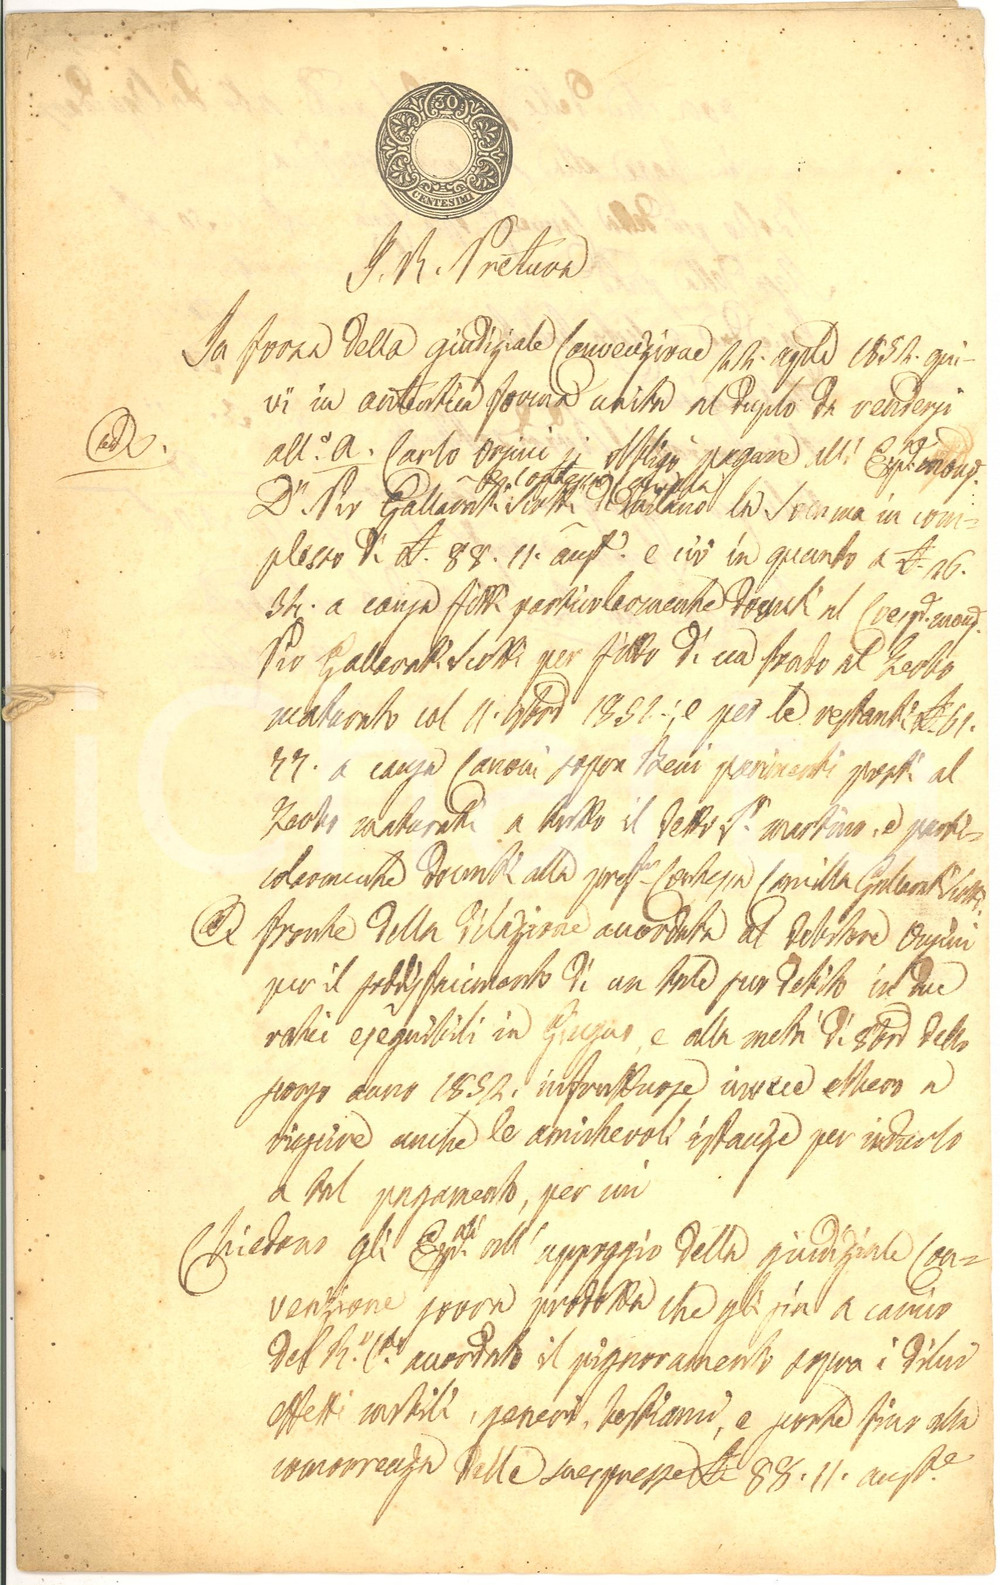 30
CENTESIMI
I. R. Pretura
In forza della giudiziale Convenzione 22. aple 1852. qui-
vi in autentica forma unita al duplo da rendersi
all. A. Carlo Orsini si obbligò pagare all'
Dn Pio Gallarati Scotti di Milano la somma in com=
plesso di £. 88. 11. aust. e ciò in quanto a £. 26.
34. a causa fitti particolarmente dovuti al
Pio Gallarati Scotti per fitto di un fondo al Zerbo
maturato col 11. 9bre 1852.; e per le restanti £. 61.
77. a causa Canoni sopra Beni parimenti posti al
Zerbo maturati a tutto il detto S. Martino, e parti=
colarmente dovuti alla pref. Contessa Camilla Gallarati Scotti.
A fronte della dilazione accordata al debitore Orsini
per il soddisfacimento di un tale suo debito in due
ratei eseguibili in Giugno, e alla metà di 8bre dello
scorso anno 1852. infruttuose invece ebbero a
riuscire anche le amichevoli istanze per indurlo
a tal pagamento, per cui
Chiedono gli all'appoggio della giudiziale Con=
venzione sovra prodotta che gli sia a carico
del accordato il pignoramento sopra i di lui
effetti mobili, generi, bestiami, e scorte fino alla
concorrenza delle suespresse £. 88. 11. aust.e